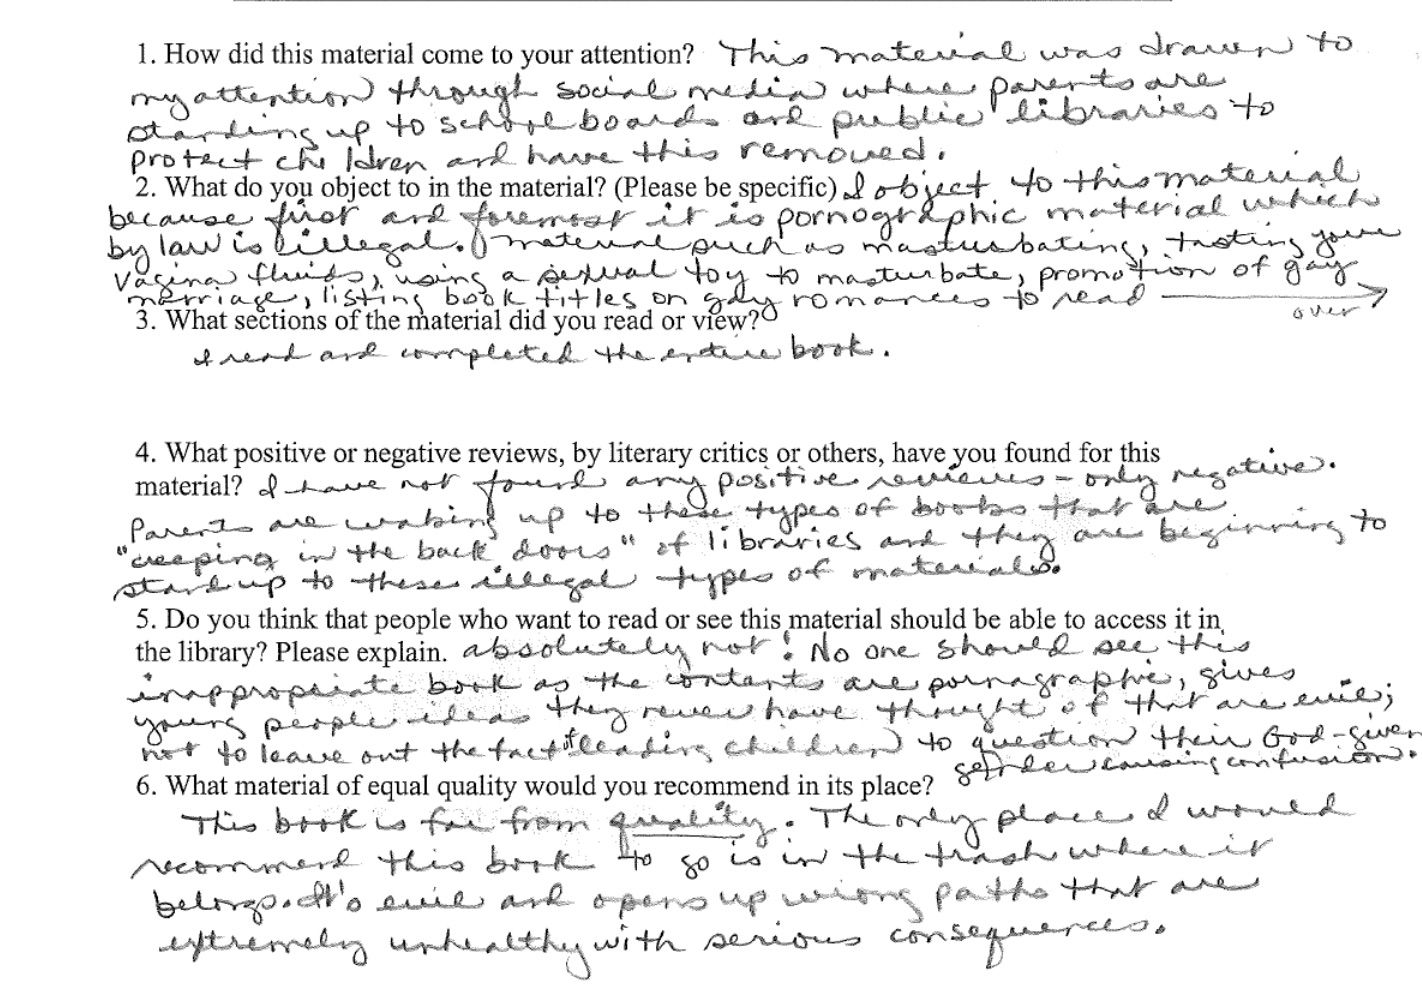 1. How did this material come to your attention? This material was drawn to
my attention through social media where parents are
standing up to school boards and public libraries to
protect children and have this removed.
2. What do you object to in the material? (Please be specific) I object to this material
because first and foremost it is pornographic material which
by law is illegal. Material such as mastusbating, tasting your
vagina fluids, using a sexual toy to masturbate, promotion of gay
merriage, listing book titles on gay romances to read
over
3. What sections of the material did you read or view?
I read and completed the entire book.
4. What positive or negative reviews, by literary critics or others, have you found for this
material? I have not found any positive reviews - only negative.
Parents are waking up to these types of books that are
"creeping in the back doors" of libraries and they are beginning to
stand up to these illegal types of materials.
5. Do you think that people who want to read or see this material should be able to access it in
the library? Please explain. absolutely not! No one should see this
inappropriate book as the contents are pornagraphic, gives
young people ideas they never have thought of that are evil;
not to leave out the fact of leading children to question their God-given
gender causing confusion.
6. What material of equal quality would you recommend in its place?
This book is far from quality. The only place I would
recommend this book to go is in the trash where it
belongs. It's evil and opens up wrong paths that are
extremely unhealthy with serious consequences.